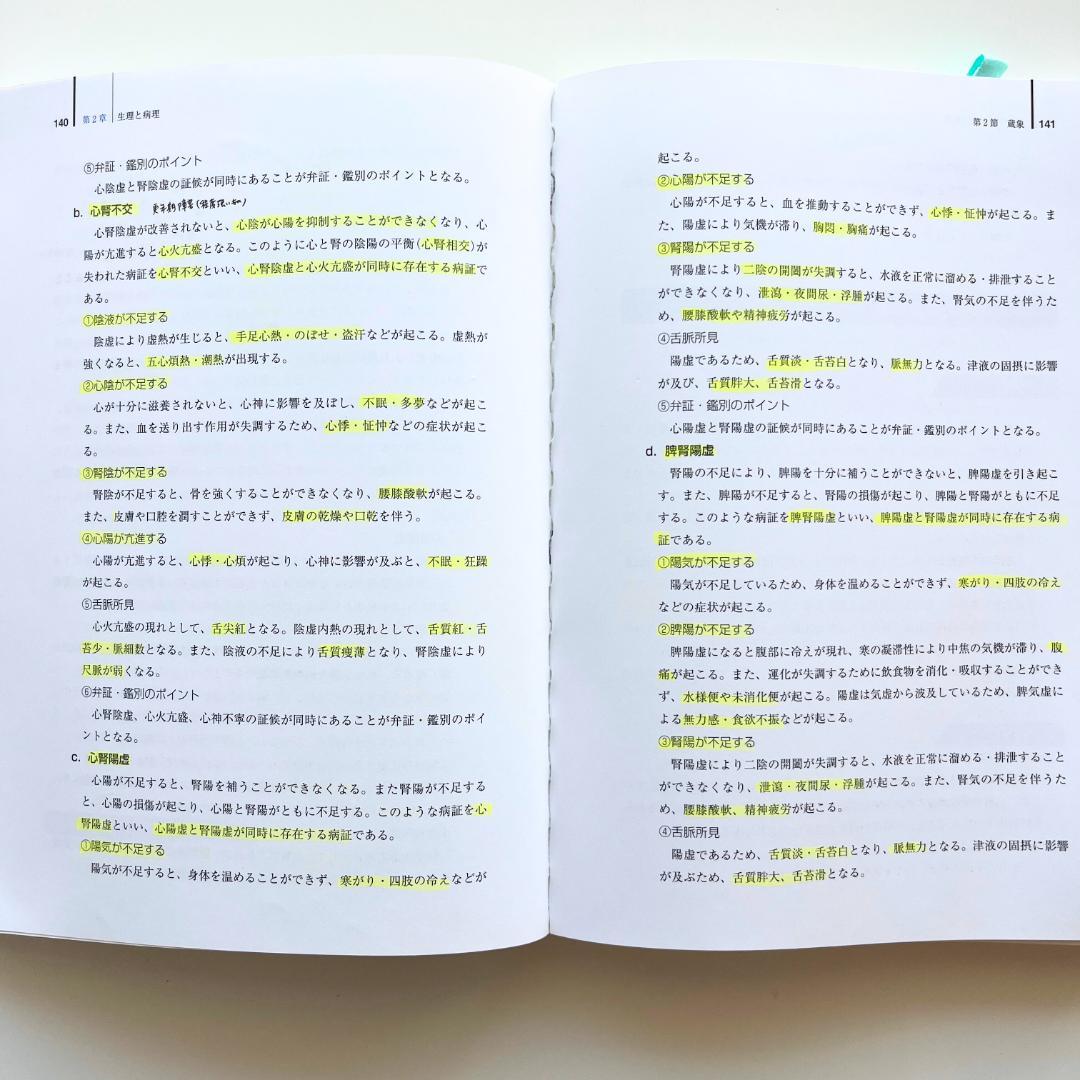 140 第2章 生理と病理
⑤弁証・鑑別のポイント
心陰虚と腎陰虚の証候が同時にあることが弁証・鑑別のポイントとなる。
b. 心腎不交 更年期障害
心腎陰虚が改善されないと、心陰が心陽を抑制することができなくなり、心
陽が亢進すると心火亢盛となる。このように心と腎の陰陽の平衡(心腎相交)が
失われた病証を心腎不交といい、心腎陰虚と心火亢盛が同時に存在する病証で
ある。
①陰液が不足する
陰虚により虚熱が生じると、手足心熱・のぼせ・盗汗などが起こる。虚熱が
強くなると、五心煩熱・潮熱が出現する。
②心陰が不足する
心が十分に滋養されないと、心神に影響を及ぼし、不眠・多夢などが起こ
る。また、血を送り出す作用が失調するため、心悸・怔忡などの症状が起こ
る。
③腎陰が不足する
腎陰が不足すると、骨を強くすることができなくなり、腰膝酸軟が起こる。
また、皮膚や口腔を潤すことができず、皮膚の乾燥や口乾を伴う。
④心陽が亢進する
心陽が亢進すると、心悸・心煩が起こり、心神に影響が及ぶと、不眠・狂躁
が起こる。
⑤舌脈所見
心火亢盛の現れとして、舌尖紅となる。陰虚内熱の現れとして、舌質紅・舌
苔少・脈細数となる。また、陰液の不足により舌質痩薄となり、腎陰虚により
尺脈が弱くなる。
⑥弁証・鑑別のポイント
心腎陰虚、心火亢盛、心神不寧の証候が同時にあることが弁証・鑑別のポイ
ントとなる。
c. 心腎陽虚
心陽が不足すると、腎陽を補うことができなくなる。また腎陽が不足する
と、心陽の損傷が起こり、心陽と腎陽がともに不足する。このような病証を心
腎陽虚といい、心陽虚と腎陽虚が同時に存在する病証である。
①陽気が不足する
陽気が不足すると、身体を温めることができず、寒がり・四肢の冷えなどが
第2節 蔵象 141
起こる。
②心陽が不足する
心陽が不足すると、血を推動することができず、心悸・怔忡が起こる。ま
た、陽虚により気機が滞り、胸悶・胸痛が起こる。
③腎陽が不足する
腎陽虚により二陰の開闔が失調すると、水液を正常に溜める・排泄すること
ができなくなり、泄瀉・夜間尿・浮腫が起こる。また、腎気の不足を伴うた
め、腰膝酸軟や精神疲労が起こる。
④舌脈所見
陽虚であるため、舌質淡・舌苔白となり、脈無力となる。津液の固摂に影響
が及び、舌質胖大、舌苔滑となる。
⑤弁証・鑑別のポイント
心陽虚と腎陽虚の証候が同時にあることが弁証・鑑別のポイントとなる。
d. 脾腎陽虚
腎陽の不足により、脾陽を十分に補うことができないと、脾陽虚を引き起こ
す。また、脾陽が不足すると、腎陽の損傷が起こり、脾陽と腎陽がともに不足
する。このような病証を脾腎陽虚といい、脾陽虚と腎陽虚が同時に存在する病
証である。
①陽気が不足する
陽気が不足しているため、身体を温めることができず、寒がり・四肢の冷え
などの症状が起こる。
②脾陽が不足する
脾陽虚になると腹部に冷えが現れ、寒の凝滞性により中焦の気機が滞り、腹
痛が起こる。また、運化が失調するために飲食物を消化・吸収することができ
ず、水様便や未消化便が起こる。陽虚は気虚から波及しているため、脾気虚に
よる無力感・食欲不振などが起こる。
③腎陽が不足する
腎陽虚により二陰の開闔が失調すると、水液を正常に溜める・排泄すること
ができなくなり、泄瀉・夜間尿・浮腫が起こる。また、腎気の不足を伴うた
め、腰膝酸軟、精神疲労が起こる。
④舌脈所見
陽虚であるため、舌質淡・舌苔白となり、脈無力となる。津液の固摂に影響
が及ぶため、舌質胖大、舌苔滑となる。